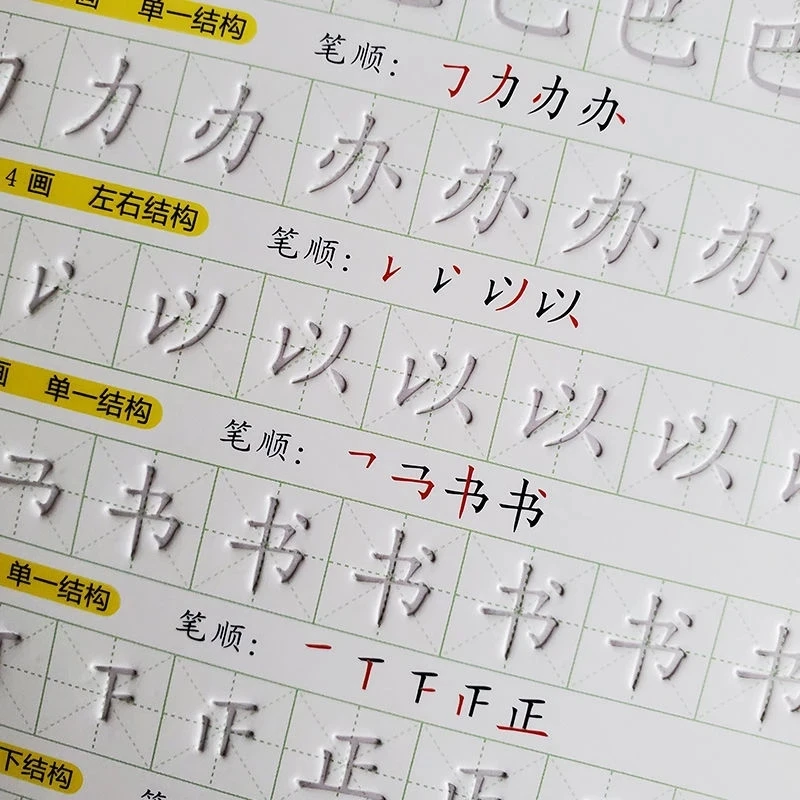 巴 巴 巴
画 单一结构 笔顺： 𠃌 力 办 办
力 办 办 办 办 办
4画 左右结构 笔顺： 以 以
以 以 以 以 以
画 单一结构 笔顺： 书 书
书 书 书 书 书 书
单一结构 笔顺： 一 丅 下 正
下 正
下结构 笔